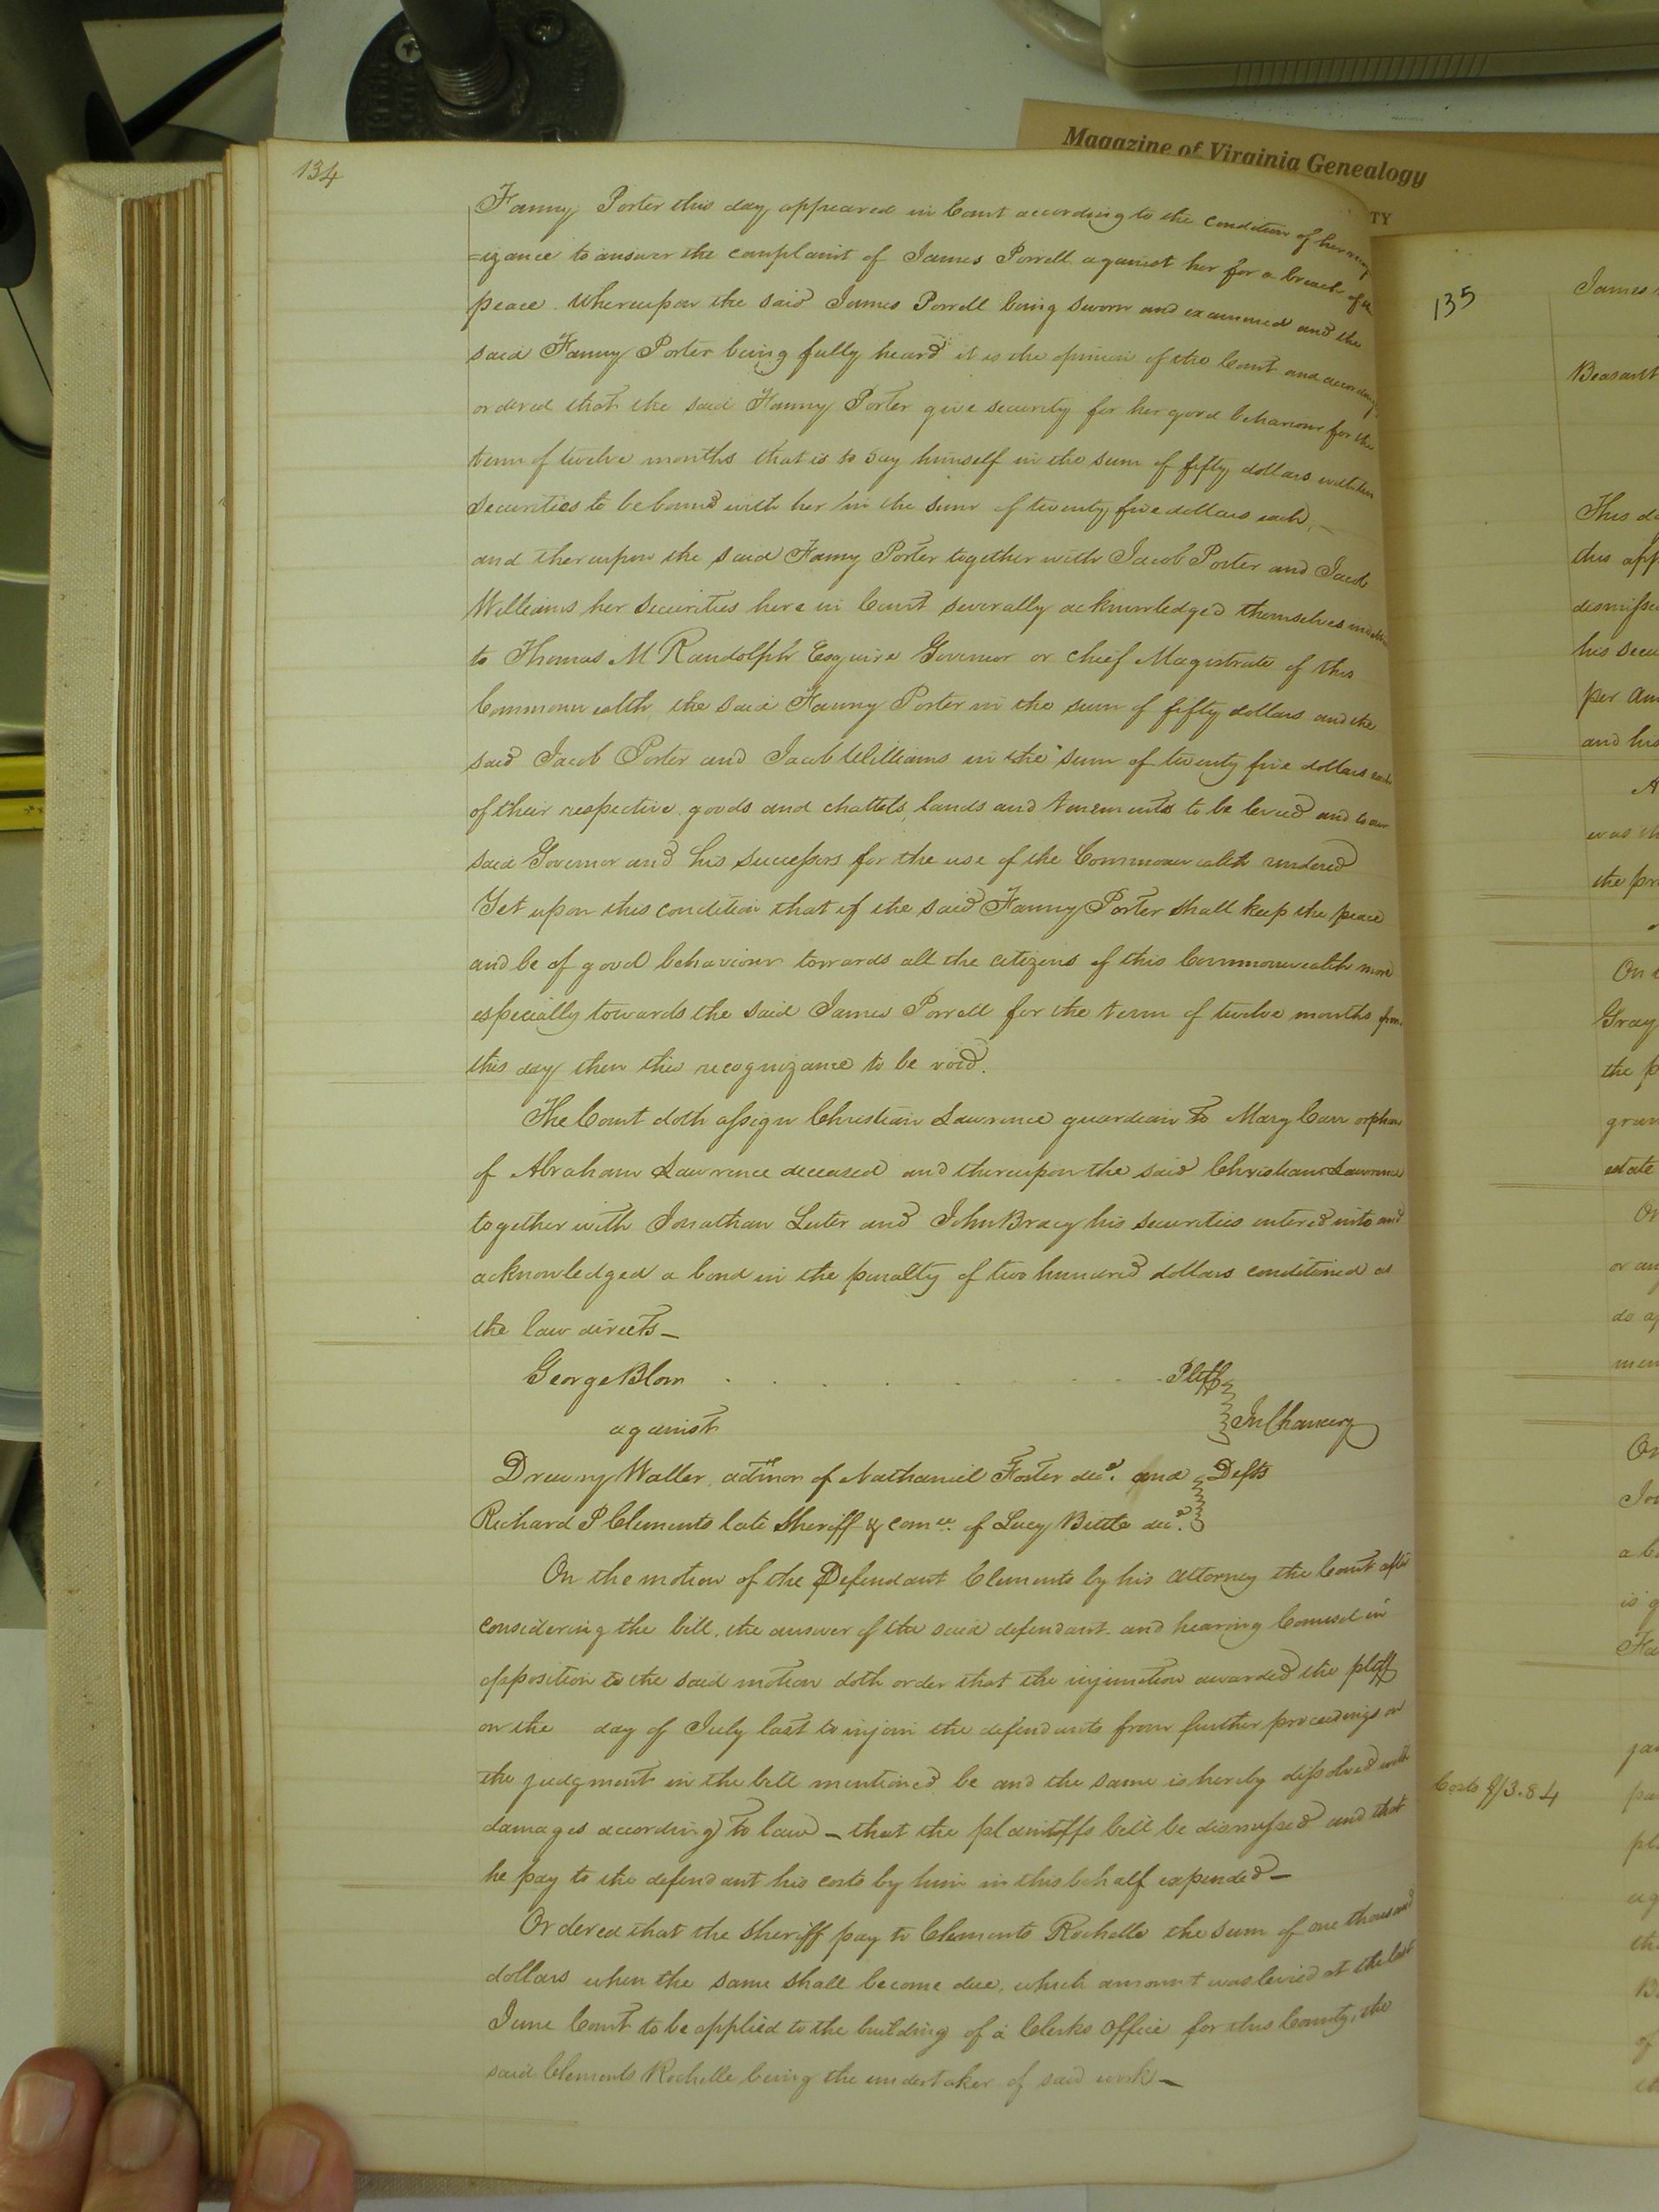 Magazine of Virginia Genealogy
TY
134
Fanny Porter this day appeared in Court according to the condition of her
=izance to answer the complaint of James Porrell against her for a breach of
peace. Whereupon the said James Porrell being sworn and examined and the
said Fanny Porter being fully heard it is the opinion of the Court and
ordered that the said Fanny Porter give security for her good behaviour for the
term of twelve months that is to say himself in the sum of fifty dollars with
securities to be bound with her in the sum of twenty five dollars each,
and thereupon the said Fanny Porter together with Jacob Porter and Jacob
Williams her securities here in Court severally acknowledged themselves
to Thomas M Randolph Esquire Governor or chief Magistrate of this
Commonwealth, the said Fanny Porter in the sum of fifty dollars and the
said Jacob Porter and Jacob Williams in the sum of twenty five dollars each
of their respective goods and chattels, lands and tenements to be levied and to our
said Governor and his successors for the use of the Commonwealth rendered
Yet upon this condition that if the said Fanny Porter shall keep the peace
and be of good behaviour towards all the citizens of this Commonwealth more
especially towards the said James Porrell for the term of twelve months from
this day then this recognizance to be void.
The Court doth assign Christian Lawrence guardian to Mary Carr orphan
of Abraham Lawrence deceased and thereupon the said Christian Lawrence
together with Jonathan Luter and John Bracy his securities entered into and
acknowledged a bond in the penalty of two hundred dollars conditioned as
the law directs—
George Blow . . . . . . . Pltff
against In Chancery
Drewry Waller, admor of Nathaniel Foster decd. and Defts
Richard P Clements late Sheriff & comee. of Lucy Bittle decd.
On the motion of the Defendant Clements by his Attorney the Court after
considering the bill, the answer of the said defendant and hearing Counsel in
opposition to the said motion doth order that the injunction awarded the pltff
on the day of July last to injoin the defendants from further proceedings on
the judgment in the bill mentioned be and the same is hereby dissolved with
damages according to law — that the plaintiffs bill be dismissed and that
he pay to the defendant his costs by him in this behalf expended—
Ordered that the sheriff pay to Clements Rochelle the sum of one thousand
dollars when the same shall become due, which amount was levied at the last
June Court to be applied to the building of a Clerks Office for this County, the
said Clements Rochelle being the undertaker of said work—
135
James
This
this app
his secu
and his
was
the pr
On
Gray
the p
gran
estate
or an
do a
Costs $13.84